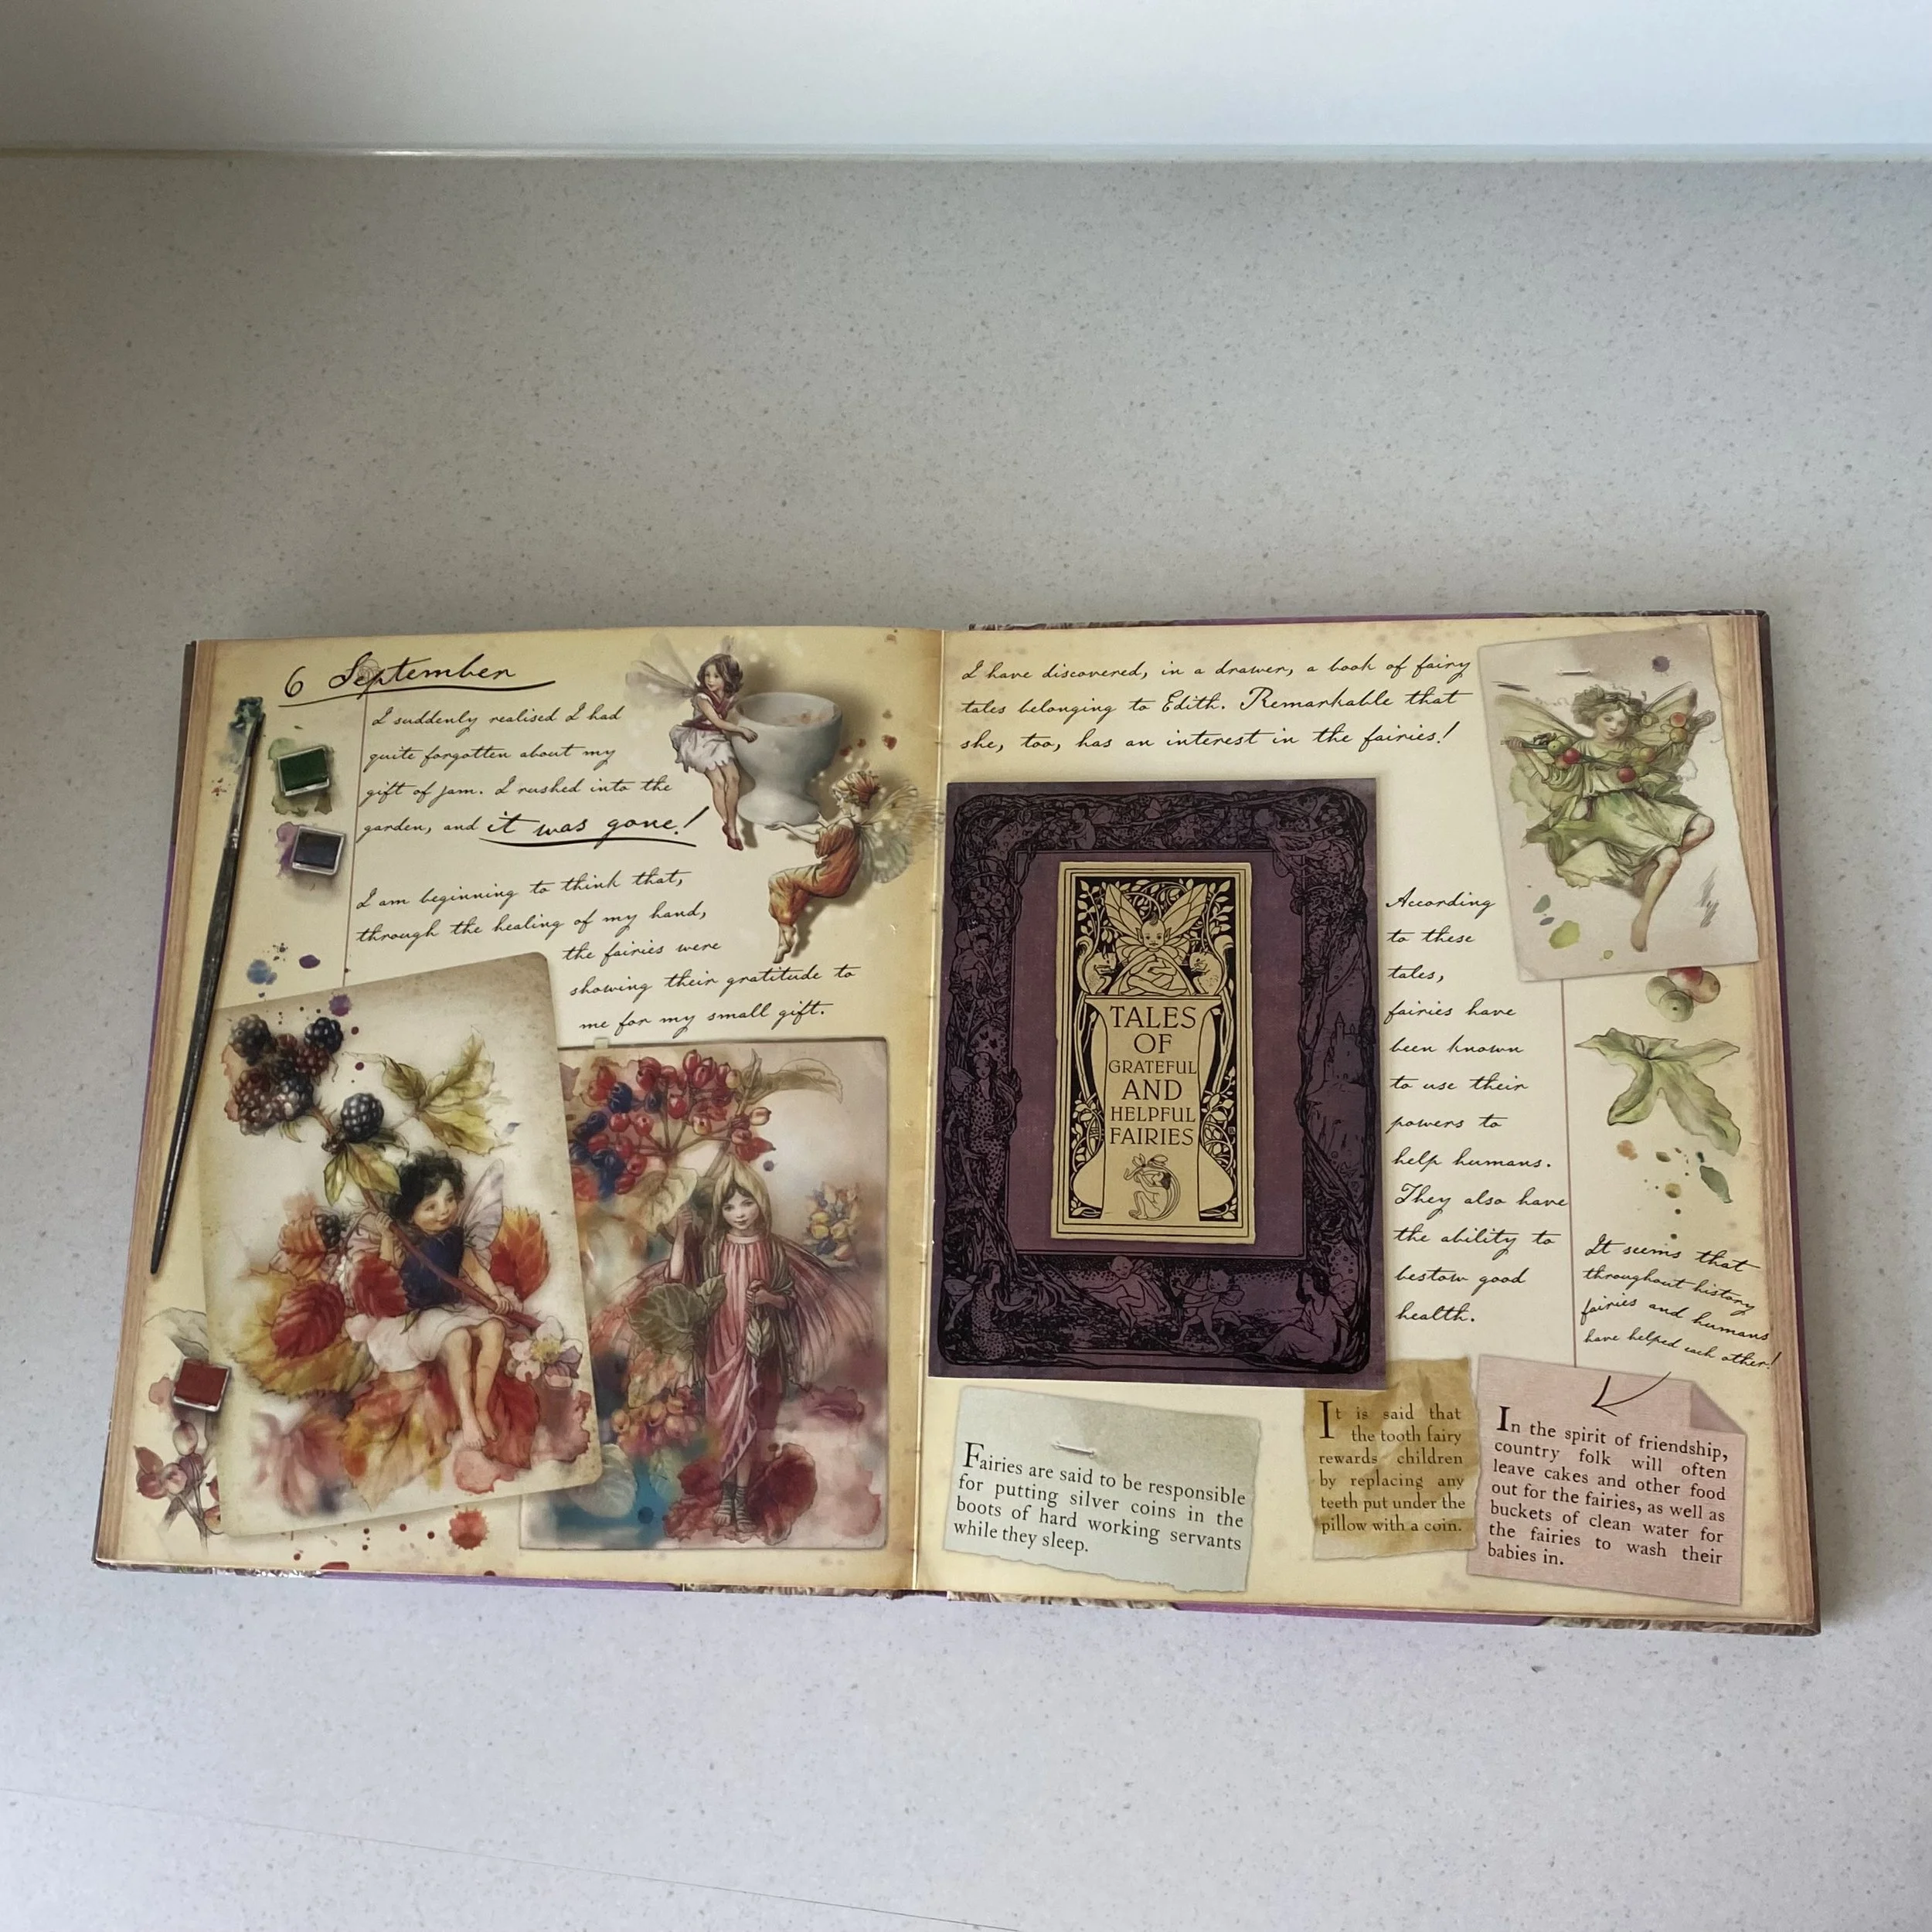 6 September
I suddenly realised I had
quite forgotten about my
gift of jam. I rushed into the
garden, and it was gone!
I am beginning to think that,
through the healing of my hand,
the fairies were
showing their gratitude to
me for my small gift.
I have discovered, in a drawer, a book of fairy
tales belonging to Edith. Remarkable that
she, too, has an interest in the fairies!
TALES
OF
GRATEFUL
AND
HELPFUL
FAIRIES
According
to these
tales,
fairies have
been known
to use their
powers to
help humans.
They also have
the ability to
bestow good
health.
It seems that
throughout history
fairies and humans
have helped each other!
Fairies are said to be responsible
for putting silver coins in the
boots of hard working servants
while they sleep.
It is said that
the tooth fairy
rewards children
by replacing any
teeth put under the
pillow with a coin.
In the spirit of friendship,
country folk will often
leave cakes and other food
out for the fairies, as well as
buckets of clean water for
the fairies to wash their
babies in.